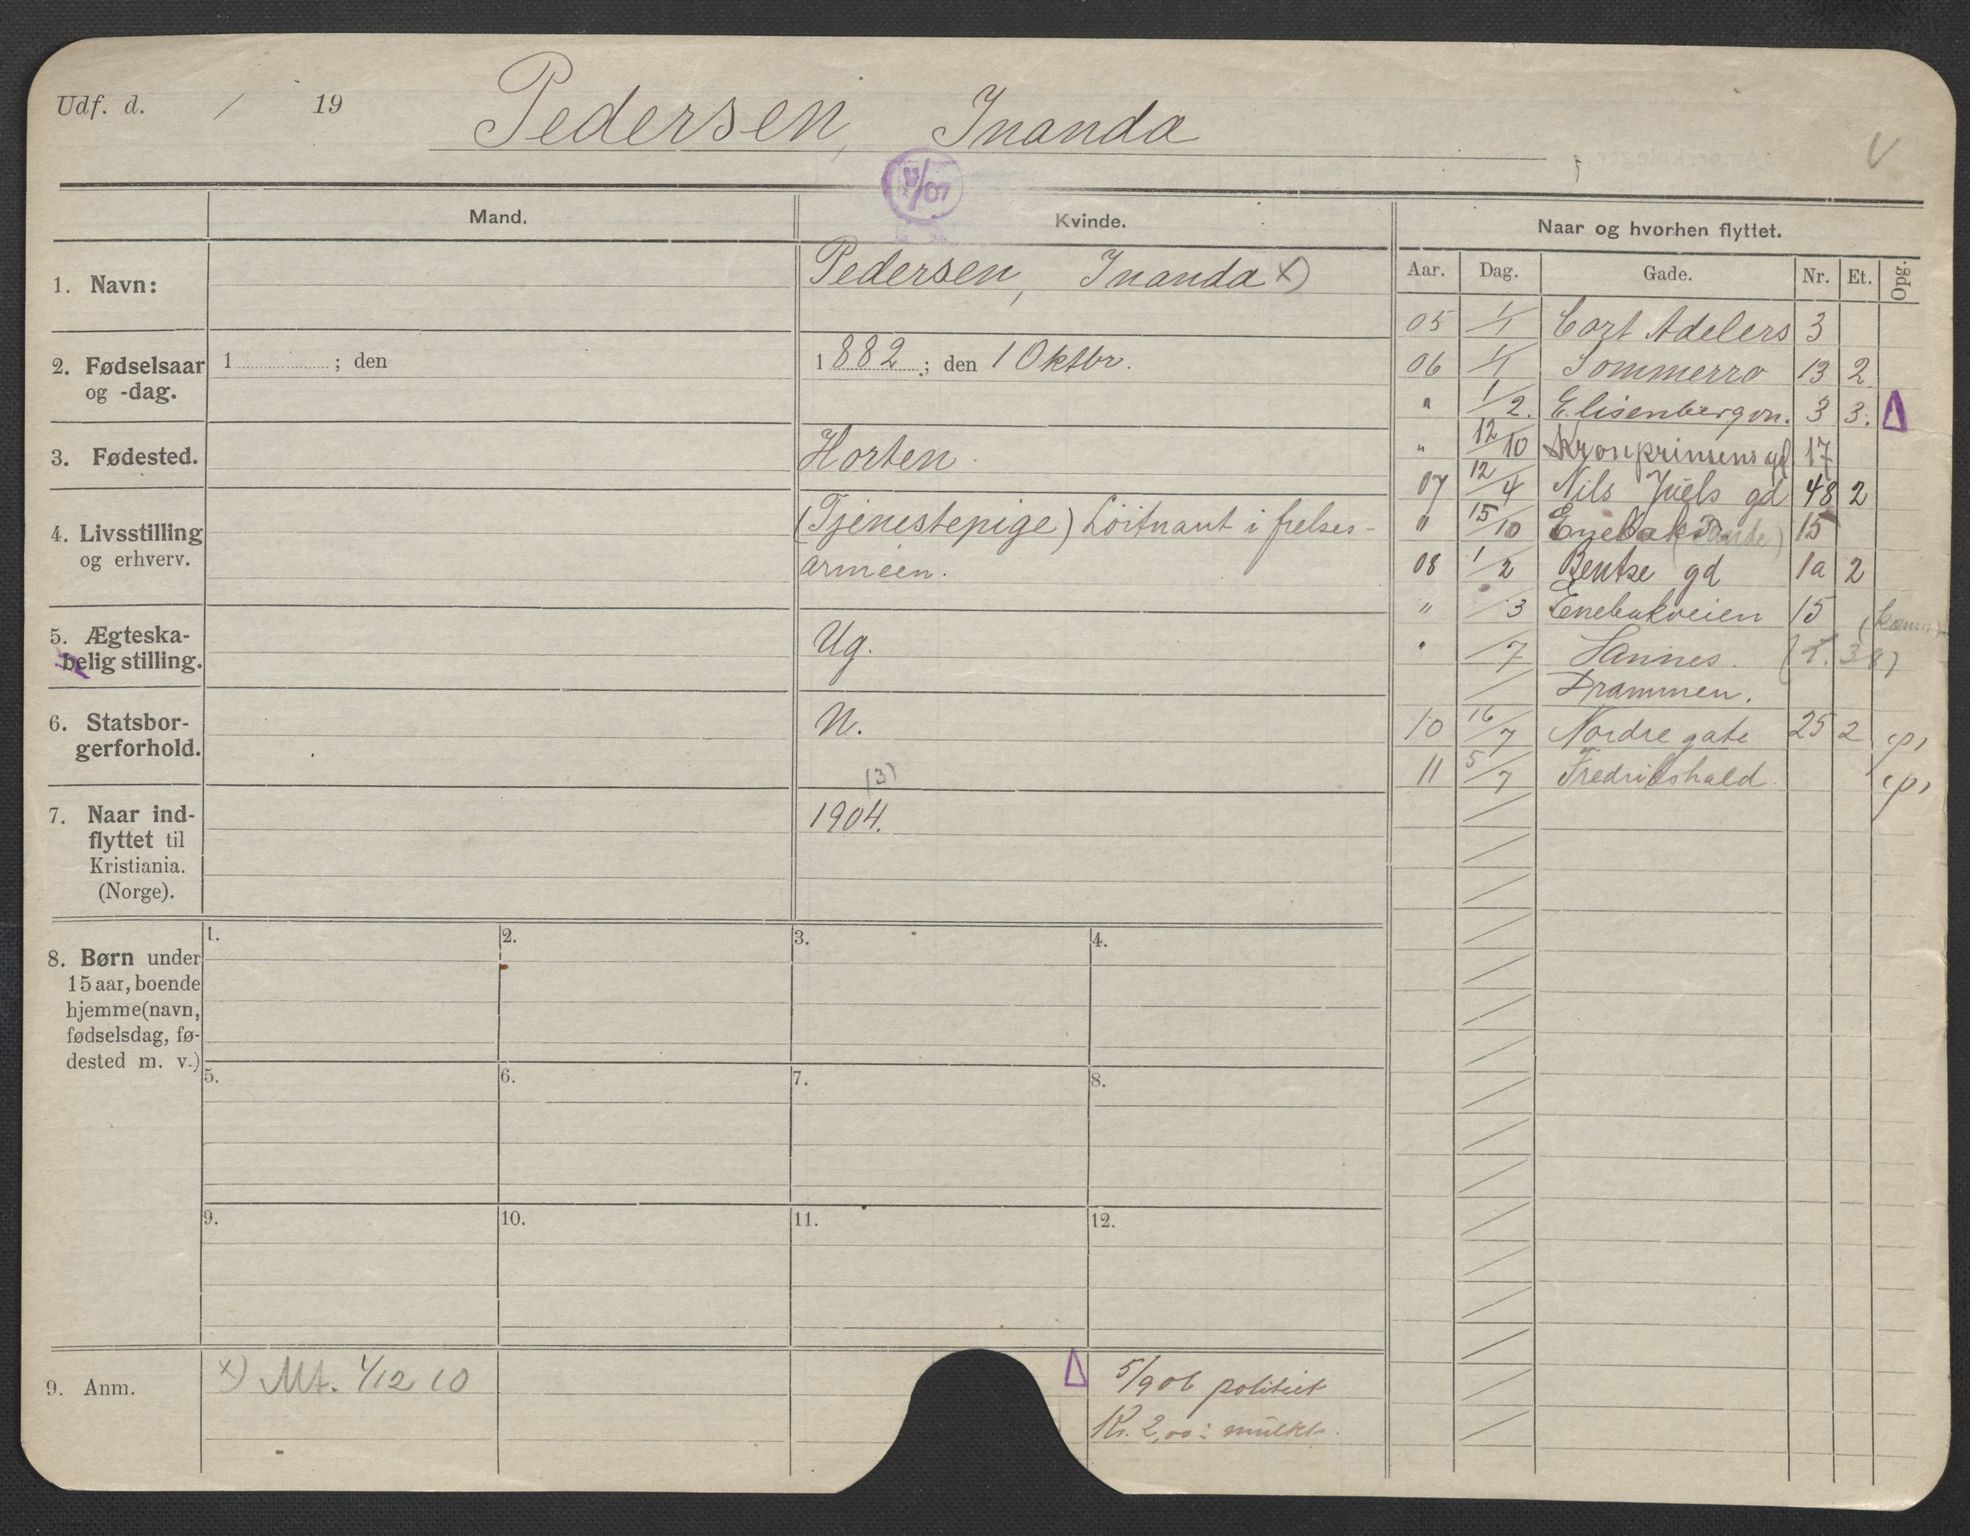 Udf. d. / 19 Pedersen, Inanda
V
/07
Mand. Kvinde. Naar og hvorhen flyttet.
Aar. Dag. Gade. Nr. Et. Opg.
1. Navn: Pedersen, Inanda x)
2. Fødselsaar
og -dag.
1 ; den
1882; den 1 Oktbr.
3. Fødested. Horten
4. Livsstilling
og erhverv.
(Tjenestepige) Löitnant i frelses-
armeen.
5. Ægteska-
belig stilling.
Ug.
6. Statsbor-
gerforhold.
N.
7. Naar ind-
flyttet til
Kristiania.
(Norge).
(3)
1904.
05 1/1 Cort Adelers 3
06 1/1 Sommerro 13 2
" 1/2. Elisenbergvn. 3 3. Δ
" 12/10 Kronprinsens gd 17
07 12/4 Nils Juels gd 48 2
" 15/10 Enebakv 15
08 1/2 Bentse gd 1a 2
" /3 Enebakveien 15
" /7 Sannes. (T. 38)
/ Drammen.
10 16/7 Nordre gate 25 2
11 5/7 Fredrikshald
8. Børn under
15 aar, boende
hjemme (navn,
fødselsdag, fø-
dested m. v.)
1. 2. 3. 4.
5. 6. 7. 8.
9. 10. 11. 12.
9. Anm.
x) Mt. 1/12 10
Δ 5/9 06 politiet
Kr. 2,00: mulkt.